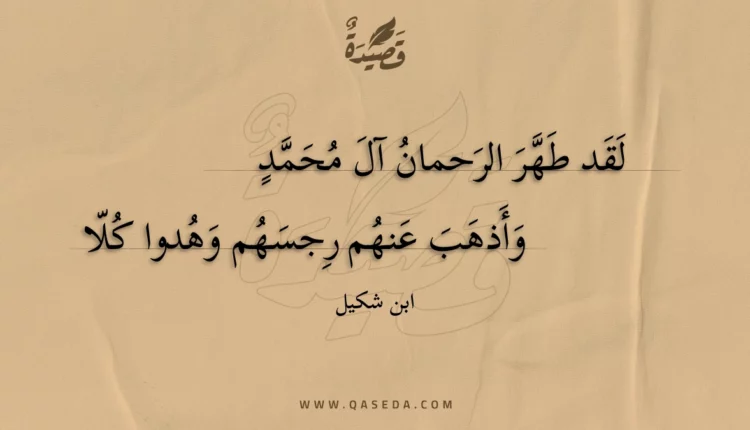 قَصِيدَةٌ
لَقَد طَهَّرَ الرَحمانُ آلَ مُحَمَّدٍ
وَأَذهَبَ عَنهُم رِجسَهُم وَهُدوا كُلّا
ابن شكيل
WWW.QASEDA.COM